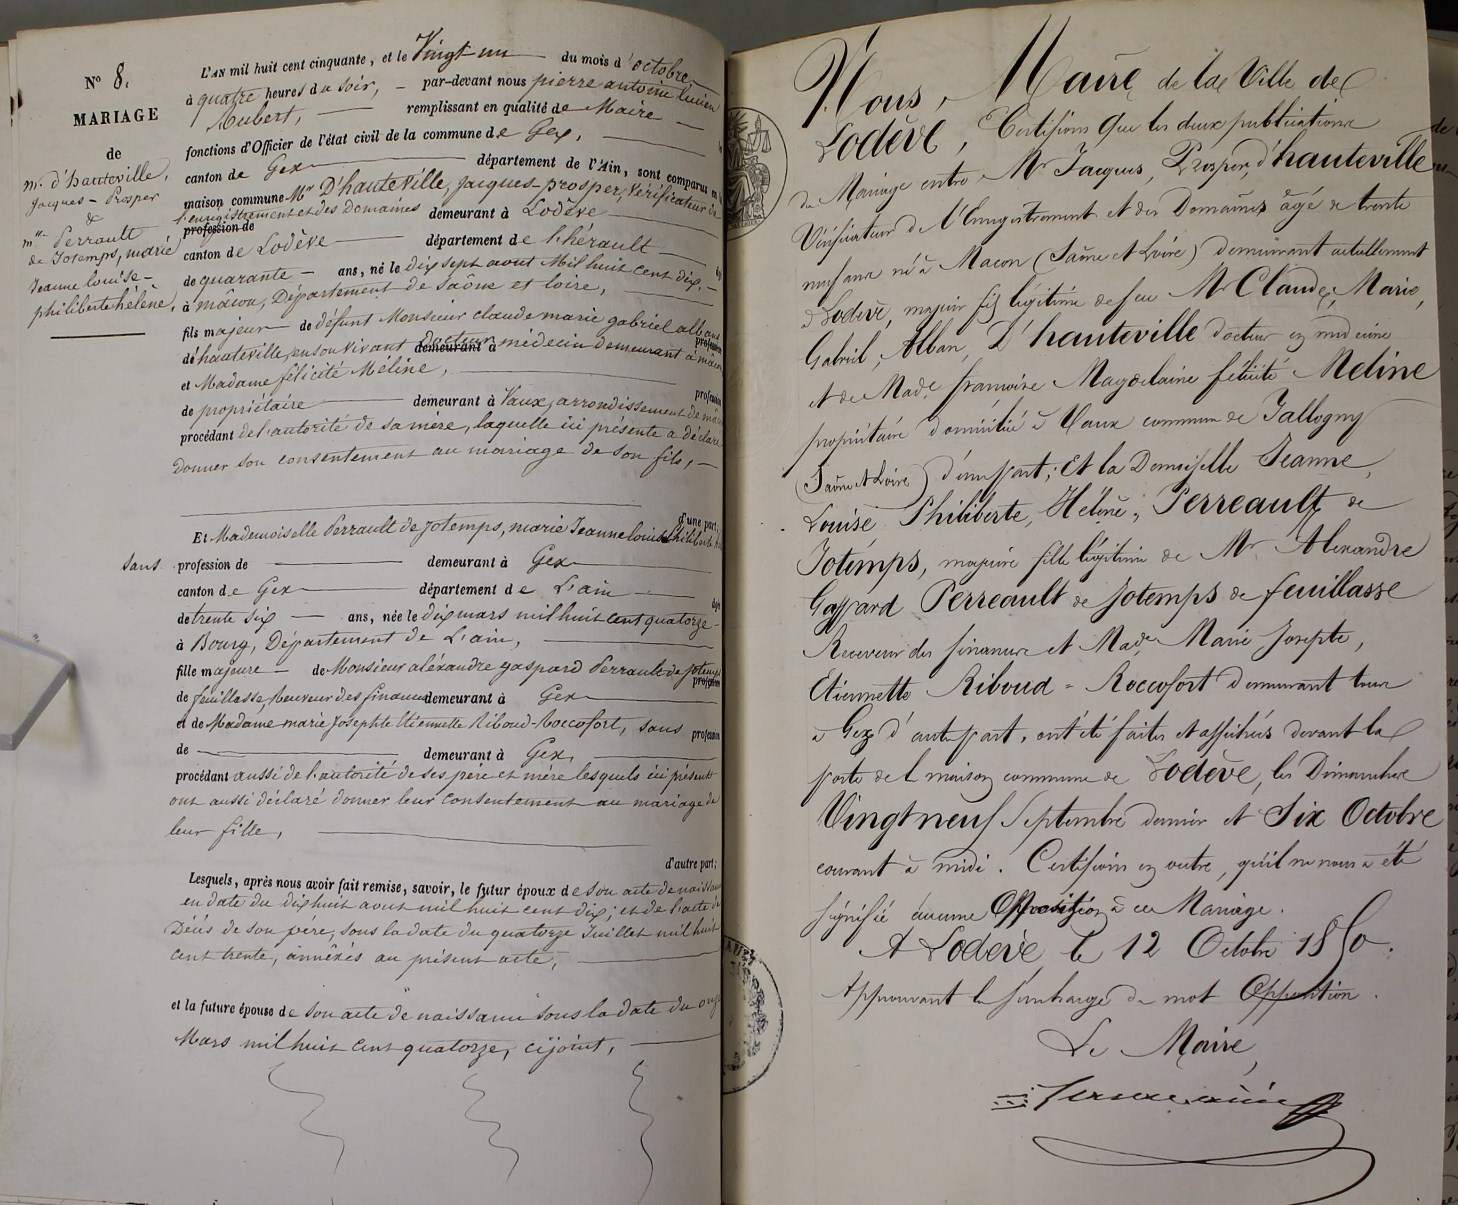 N° 8.
MARIAGE
de
Mr. d'hauteville,
Jacques - Prosper
&
Mlle Perrault
de Jotemps, marie
Jeanne louise -
philiberte hélène,
L'AN mil huit cent cinquante, et le Vingt-un du mois d'octobre
à quatre heures du soir, par-devant nous pierre antoine lucien
Aubert, remplissant en qualité de Maire
fonctions d'Officier de l'état civil de la commune de Gex,
canton de Gex département de l'Ain, sont comparus en
maison commune Mr D'hauteville, Jacques-prosper, Vérificateur de
l'enregistrement et des Domaines demeurant à Lodève
profession de
canton de Lodève département de l'hérault
de quarante ans, né le dix sept aout Mil huit cent dix,
à mâcon, Département de Saône et loire,
fils majeur de défunt Monsieur claude marie gabriel alban
d'hauteville, en son vivant Docteur médecin demeurant à mâcon
demeurant à profession
et Madame félicité Méline,
profession
de propriétaire demeurant à Vaux, arrondissement de mâcon
procédant de l'autorité de sa mère, laquelle ici présente a déclaré
donner son consentement au mariage de son fils,
d'une part;
Et Mademoiselle Perrault de Jotemps, marie Jeanne louise Philiberte
sans profession de demeurant à Gex
canton de Gex département de L'ain
de trente six ans, née le dix mars mil huit cent quatorze
à Bourg, Département de L'ain,
fille majeure de Monsieur aléxandre gaspard Perrault de Jotemps
profession
de feuillasse, Receveur des finances demeurant à Gex
et de Madame marie Josephte Etiennette Riboud-Roccofort, sans profession
de demeurant à Gex,
procédant aussi de l'autorité de ses père et mère lesquels ici présents
ont aussi déclaré donner leur consentement au mariage de
leur fille,
d'autre part;
Lesquels, après nous avoir fait remise, savoir, le futur époux de son acte de naissance
en date du dix huit aout mil huit cent dix; et de l'acte de
Décès de son père, sous la date du quatorze Juillet mil huit
cent trente, annéxés au présent acte,
et la future épouse de son acte de naissance sous la date du onze
Mars mil huit cent quatorze, cijoint,
Nous, Maire de la Ville de
Lodève, Certifions que les deux publications
de Mariage entre Mr Jacques, Prosper, d'hauteville
Vérificateur de l'Enregistrement et des Domaines âgé de trente
neuf ans né à Macon (Saône et Loire) demeurant actuellement
à Lodève, majeur fils légitime de feu Mr Claude, Marie,
Gabriel, Alban, D'hauteville docteur en médecine
et de Made françoise Magdelaine félicité Meline
propriétaire domiciliée à Vaux commune de Jallogny
(Saône et Loire) d'une part; Et la Demoiselle Jeanne,
Louise Philiberte, Hélène, Perreault de
Jotemps, majeure fille légitime de Mr Alexandre
Gaspard Perreault de Jotemps de feuillasse
Receveur des finances et Made Marie Josepte,
Etiennette Riboud = Roccofort demeurant tous
à Gex d'autre part, ont été faites et affichées devant la
porte de l maison commune de Lodève, les Dimanches
Vingt neuf Septembre dernier et Six Octobre
courant à midi. Certifions en outre, qu'il ne nous a été
signifié aucune Opposition à ce Mariage.
A Lodève, le 12 Octobre 1850.
Approuvant la surcharge du mot Opposition.
Le Maire,